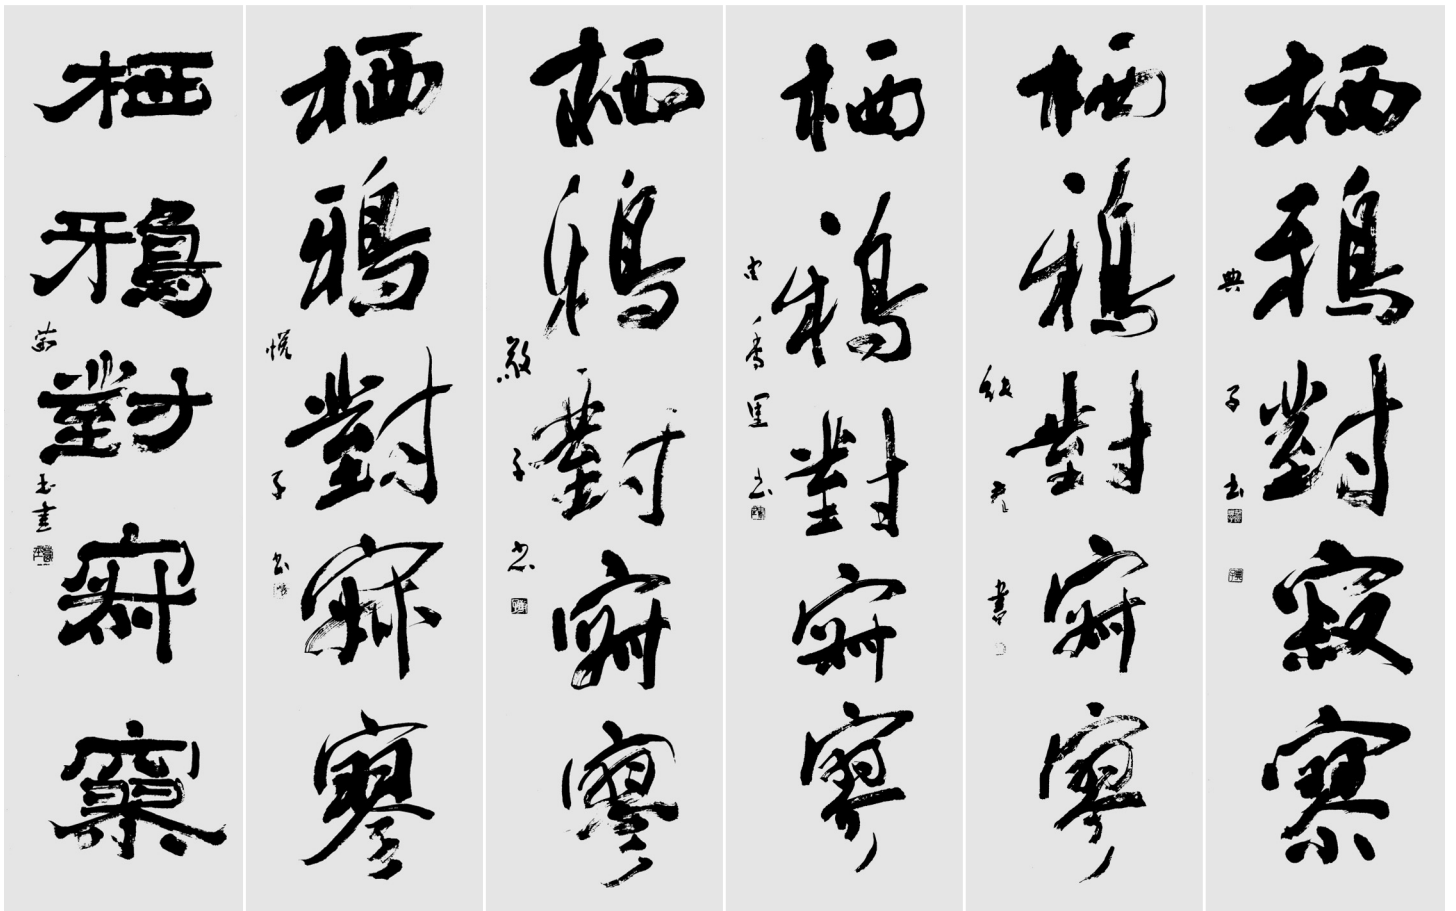 栖鴉對寂寥
典子書
栖鴉對寂寥
書
栖鴉對寂寥
香里書
栖鴉對寂寥
敬子書
栖鴉對寂寥
悦子書
栖鴉對寂寞
玉書